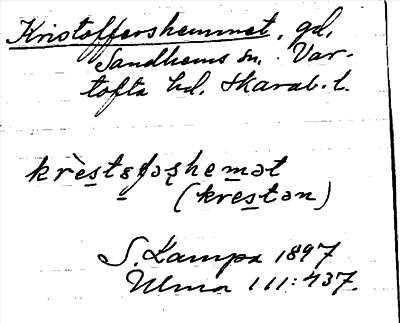 Kristoffershemmet, gd,
Sandhems sn. Var-
tofta hd. Skarab. l.
krèste̱fəʂhemət
(krestən)
S. Lampa 1897
Ulma 111:437.